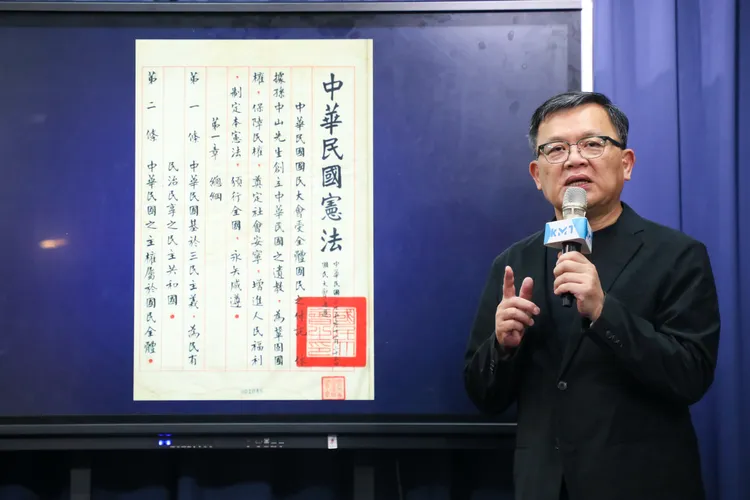 中華民國憲法
中華民國國民大會受全體國民之付託，依
據孫中山先生創立中華民國之遺教，為鞏固國
權，保障民權，奠定社會安寧，增進人民福利
，制定本憲法，頒行全國，永矢咸遵。
第一章 總綱
第一條 中華民國基於三民主義，為民有
民治民享之民主共和國。
第二條 中華民國之主權屬於國民全體。
KMT